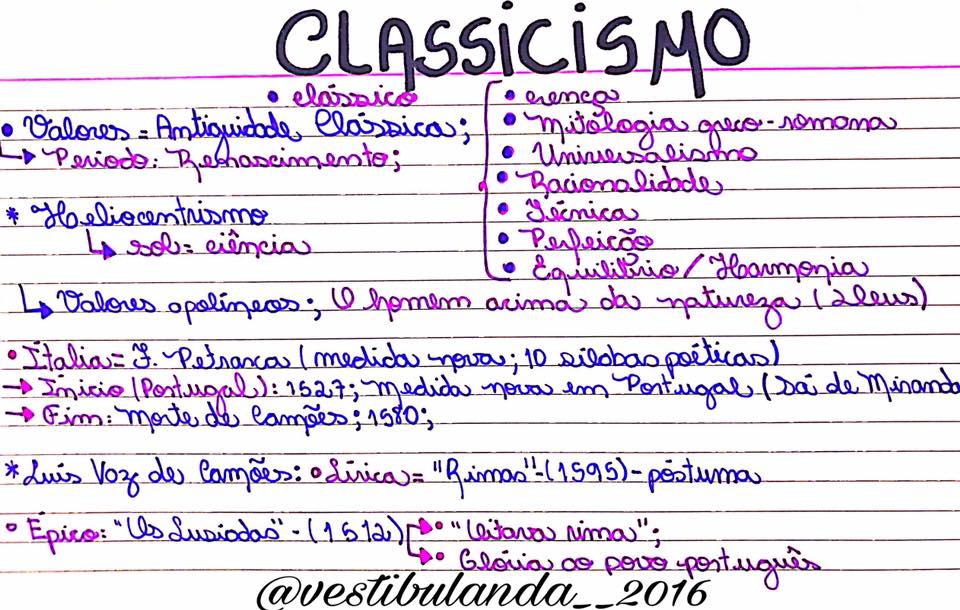 CLASSICISMO
• clássico
• Valores = Antiguidade Clássica;
↳ Período: Renascimento;
• crença
• Mitologia greco-romana
• Universalismo
• Racionalidade
• Técnica
• Perfeição
• Equilíbrio / Harmonia
* Heliocentrismo
↳ sol = ciência
↳ Valores apolíneos; O homem acima da natureza (Zeus)
• Itália = F. Petrarca (medida nova; 10 sílabas poéticas)
→ Início (Portugal): 1527; medida nova em Portugal (Sá de Miranda
→ Fim: Morte de Camões; 1580;
* Luís Vaz de Camões: • Lírica = "Rimas" - (1595) - póstuma
• Épico: "Os Lusíadas" - (1512)
→ • "Oitava rima";
→ • Glória ao povo português
@vestibulanda__2016